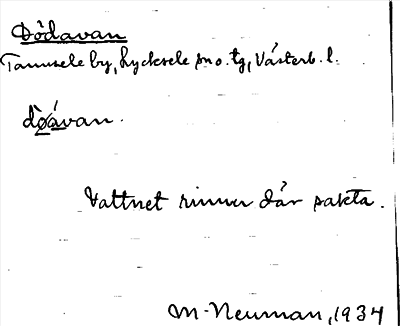 Dödavan
Tannsele by, Lycksele sn o. tg, Västerb. l.
dò̱a̱van.
Vattnet rinner där sakta.
M. Neuman, 1934